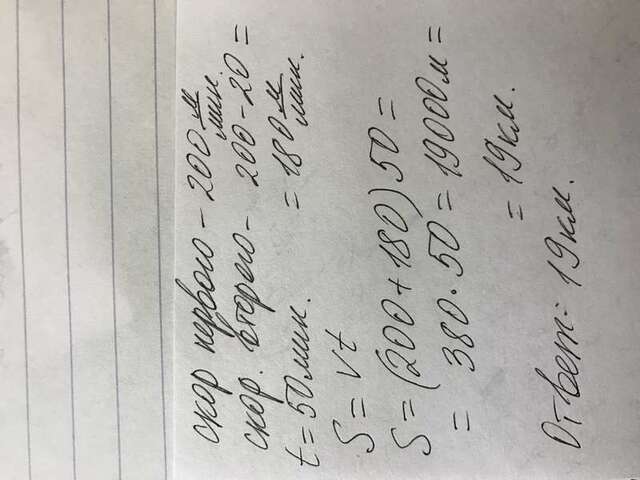 скор первого - 200 м/мин.
скор. второго - 200 - 20 =
= 180 м/мин.
t = 50 мин.
S = Vt
S = (200 + 180) 50 =
= 380 · 50 = 19000 м =
= 19 км.
Ответ: 19 км.